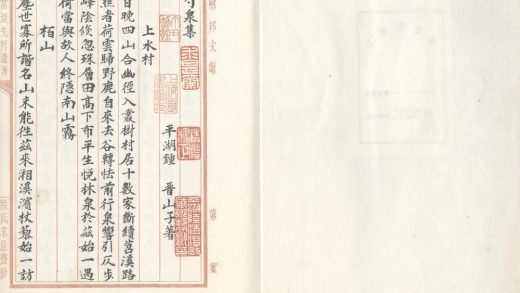 鄉邦文獻
泉集
平湖鍾 晋山子著
上水村
日晚四山合幽徑入叢樹村居十數家斷續莒溪路
樵者荷雲歸野鹿自來去谷轉怯前行泉響引仄步
峰陰倏忽殊層田高下布平生悅林泉於茲始一遇
何當與故人終隱南山霧
柏山
塵世寡所諧名山未能往茲來相溪濱杖藜始一訪